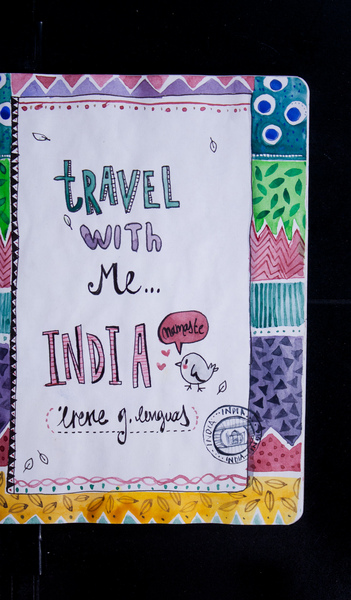 tRAVEL
WiTh
Me...
INDIA
namaste
Irene g. lenguas
INDIA
INDIA
INDIA